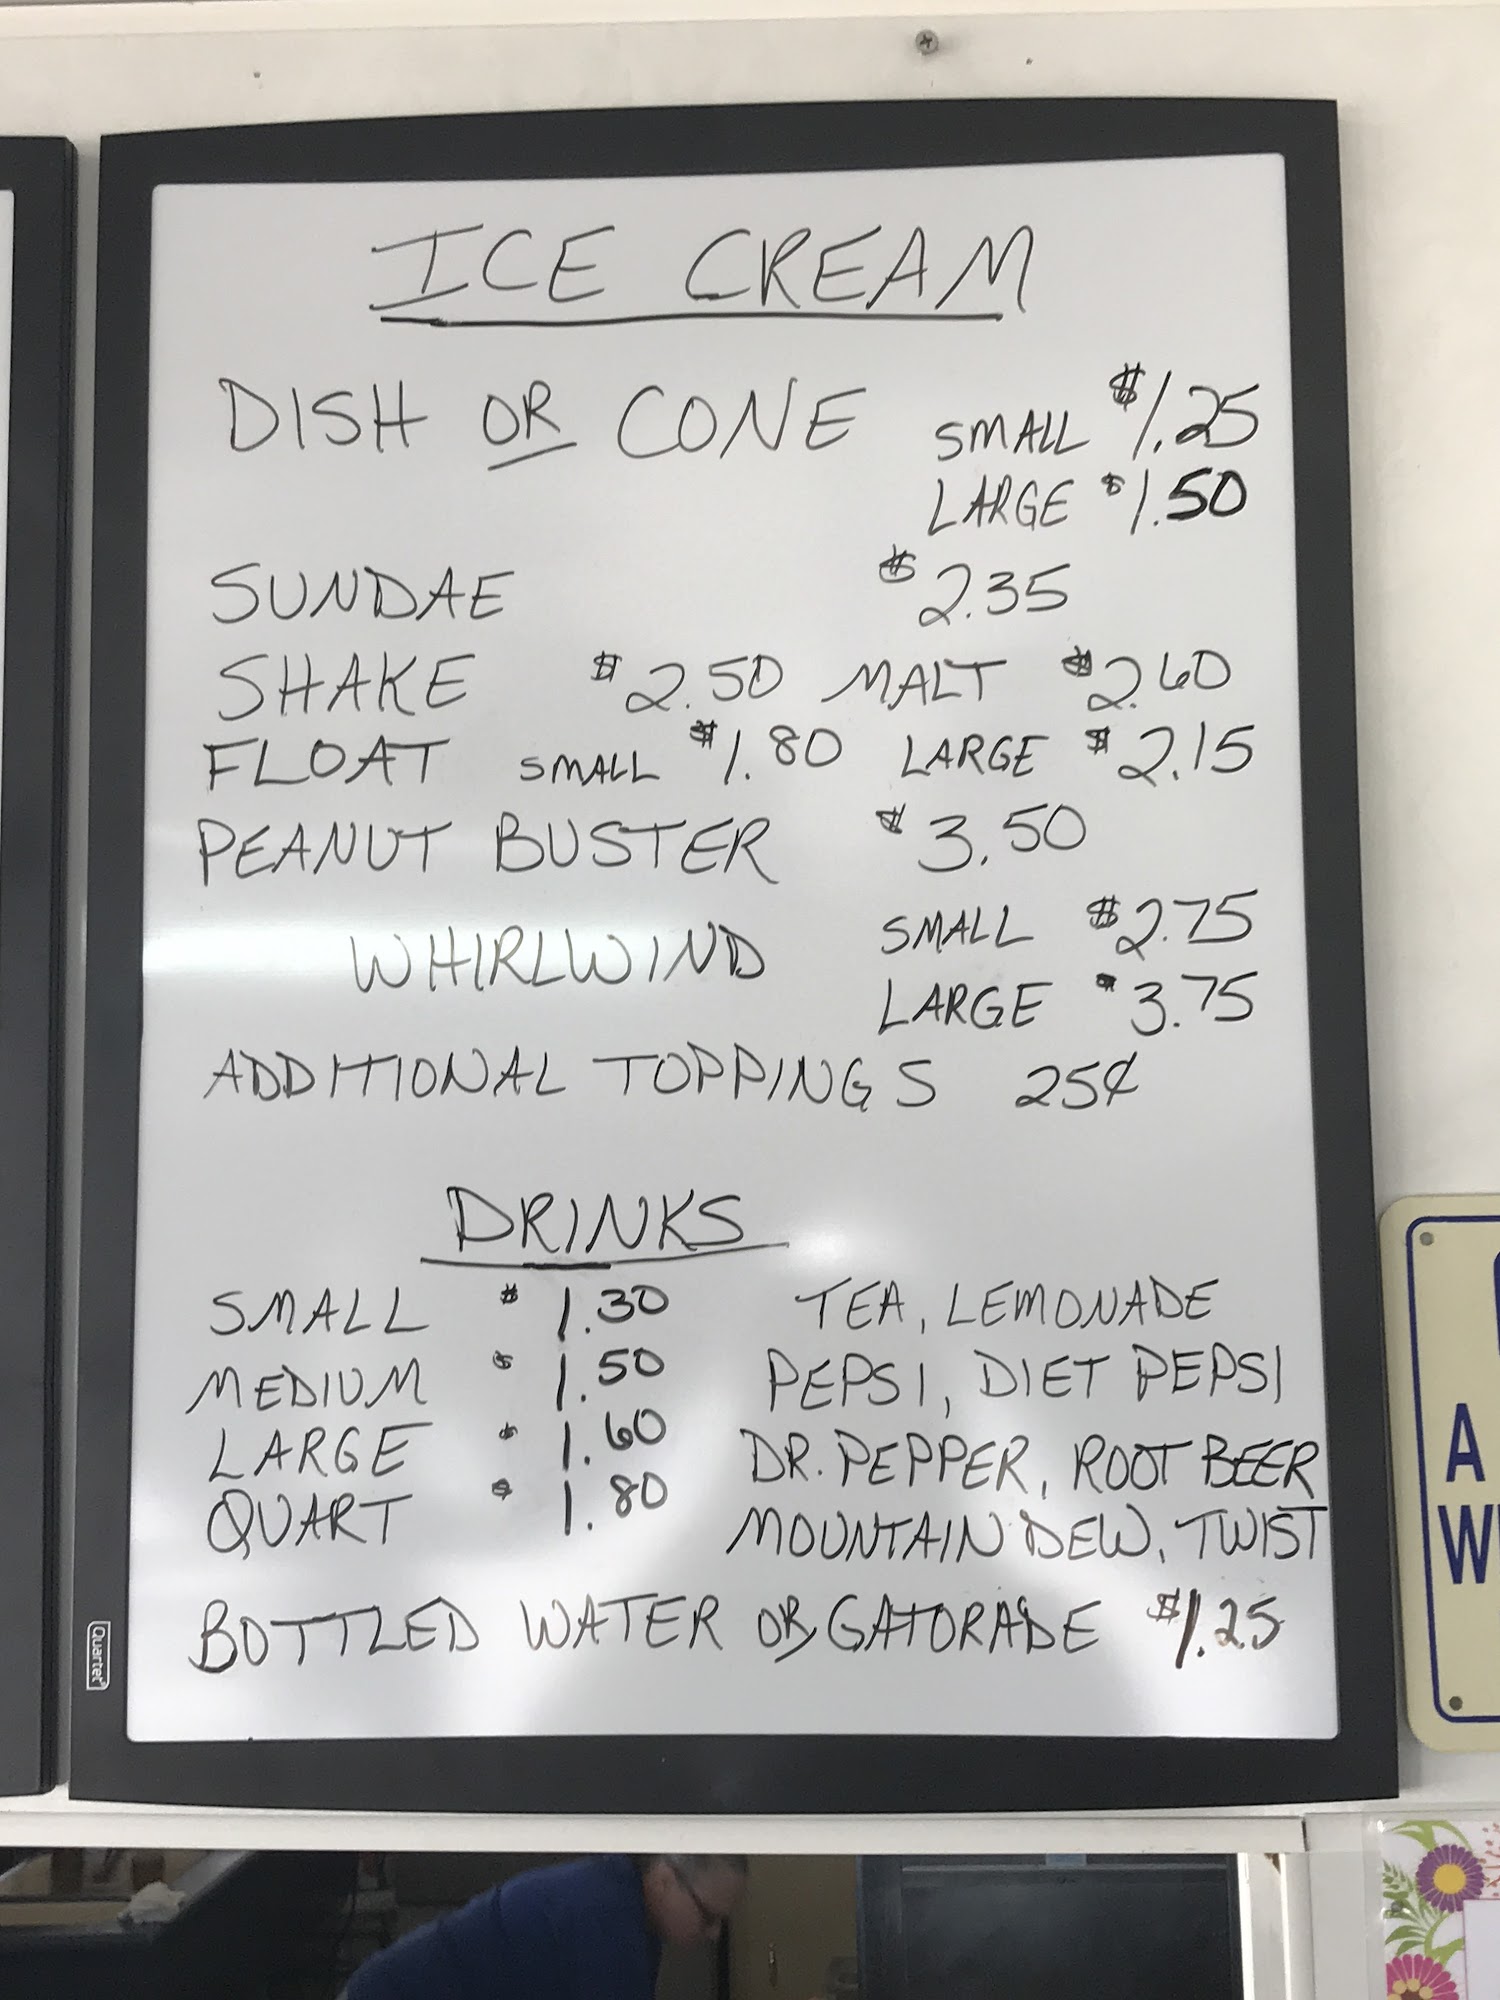 ICE CREAM
DISH OR CONE SMALL $1.25
LARGE $1.50
SUNDAE $2.35
SHAKE $2.50 MALT $2.60
FLOAT SMALL $1.80 LARGE $2.15
PEANUT BUSTER $3.50
WHIRLWIND SMALL $2.75
LARGE $3.75
ADDITIONAL TOPPINGS 25¢
DRINKS
SMALL $1.30 TEA, LEMONADE
MEDIUM $1.50 PEPSI, DIET PEPSI
LARGE $1.60 DR. PEPPER, ROOT BEER
QUART $1.80 MOUNTAIN DEW, TWIST
BOTTLED WATER OR GATORADE $1.25
Quartet
A
W